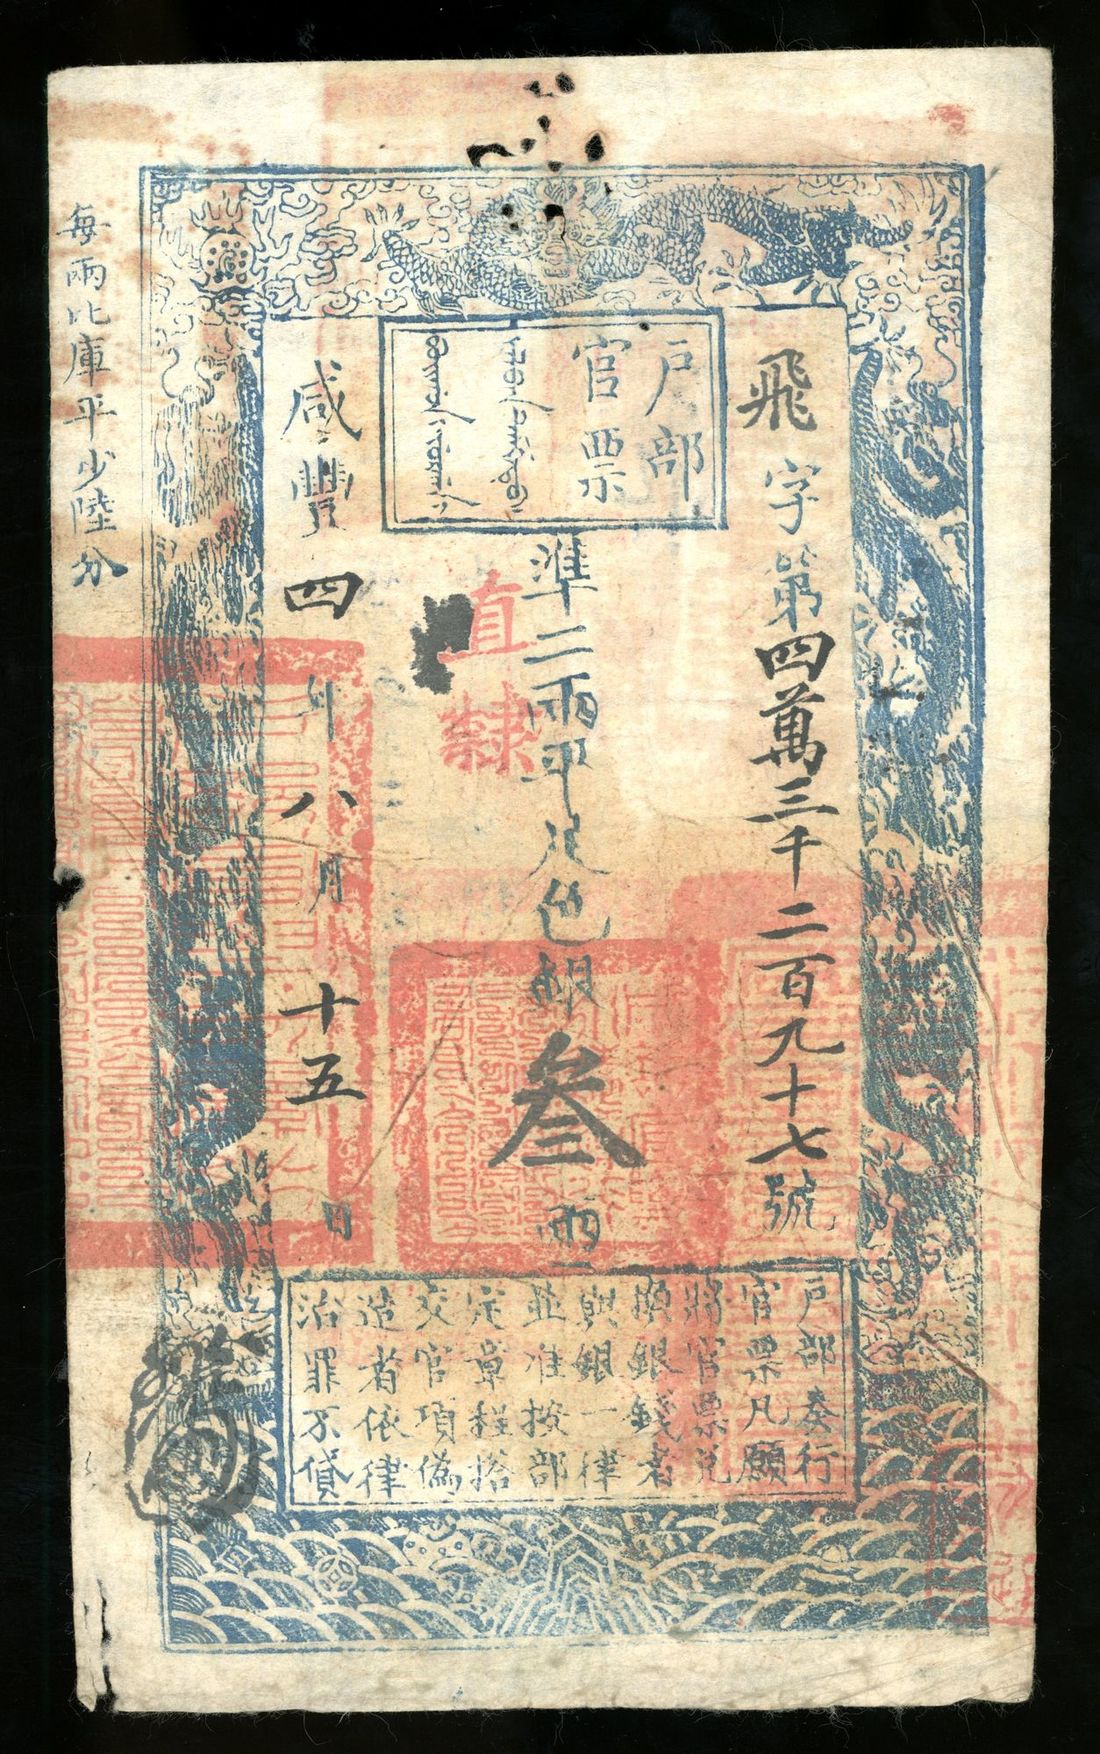 飛字第四萬三千二百九十七號
戶部
官票
準二兩平足色銀叁兩
直隸
咸豐四年八月十五日
每兩比庫平少陸分
戶部奏行
官票凡願
將官票兌
換銀錢者
與銀一律
並准按部
定章程搭
交官項偽
造者依律
治罪不貸